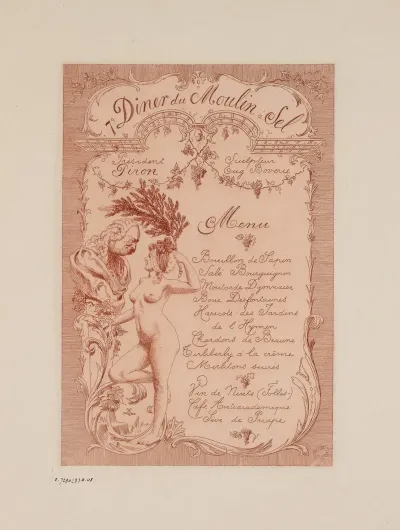 7e Diner du Moulin à Sel
Président
Piron
Sculpteur
Eug Boverie
Menu
Bouillon de Sapin
Salé Bourguignon
Moutarde Dyonnaise
Boue Desfontaines
Haricots des Jardins
de l'Hymen
Chardons de Beaune
à la crème
Mirlitons sucrés
Vin de Nuits (Folles)
Café Antiacadémique
de Priape